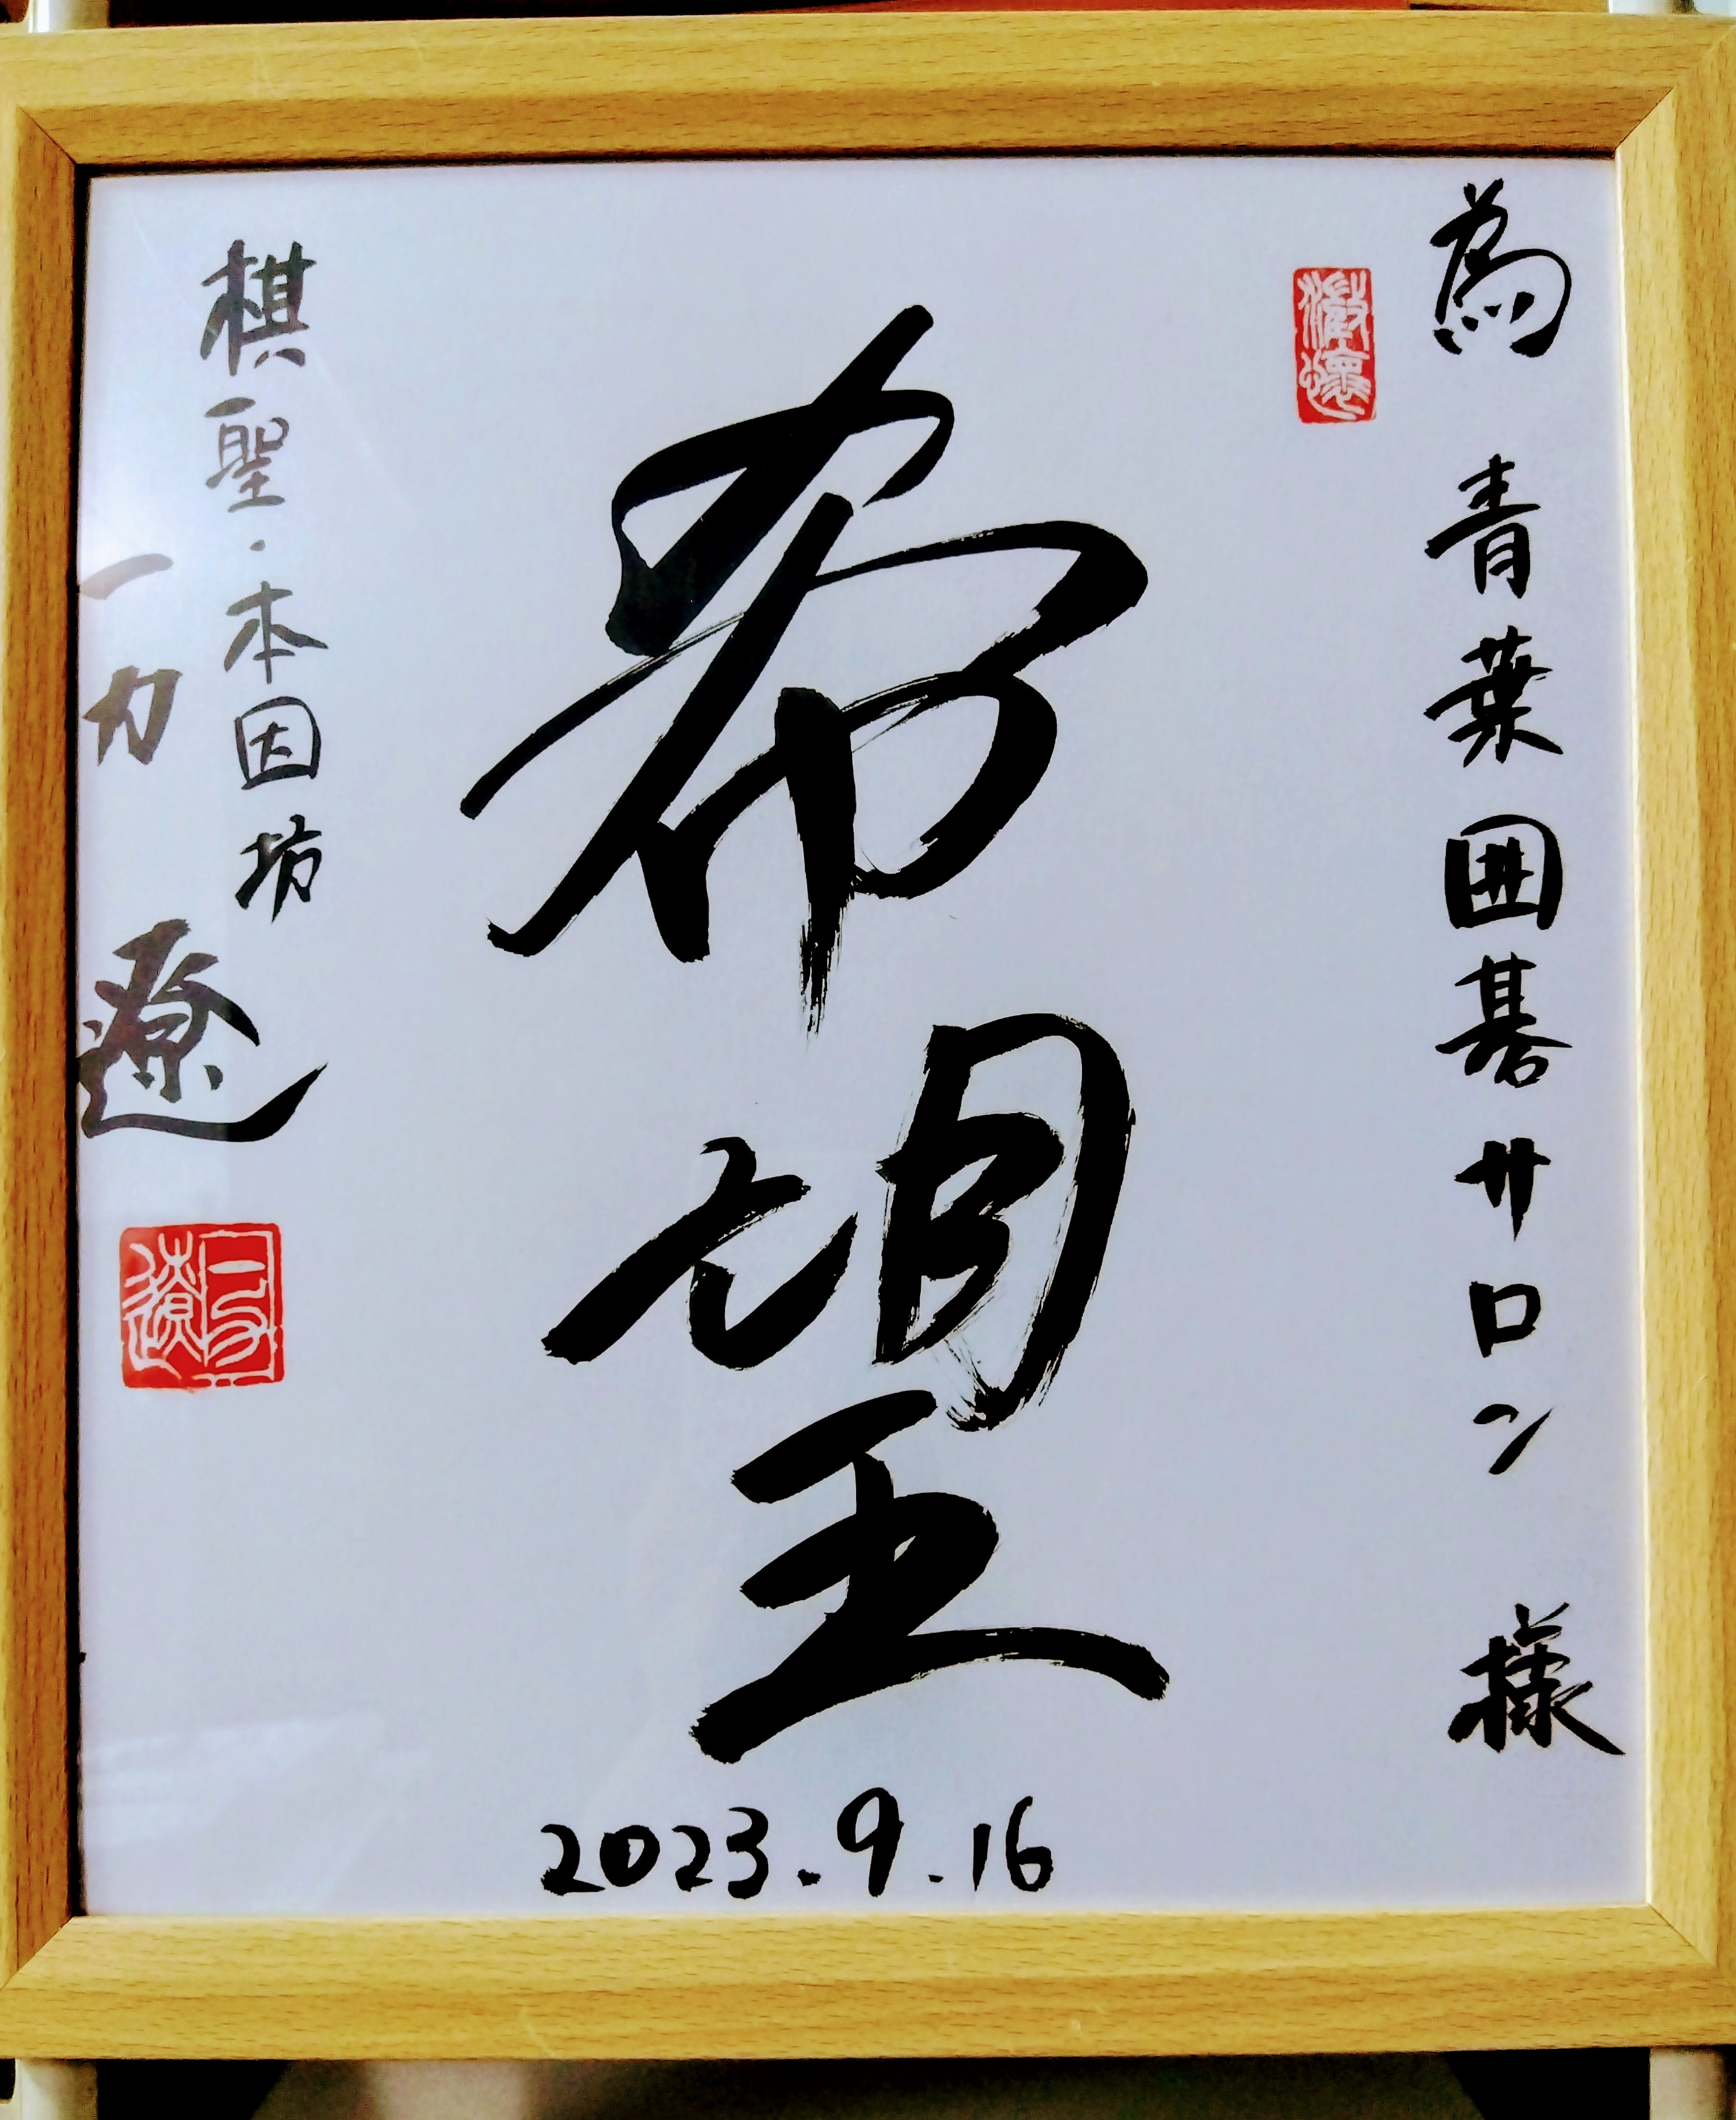 為 青葉囲碁サロン 様
希望
2023.9.16
棋聖・本因坊
一力 遼
一力遼